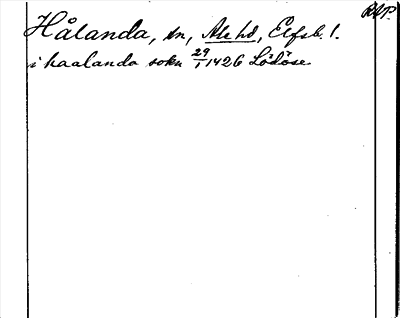 RAP.
Håland​a, sn, Ale hd, Elfsb. l.
i haalanda sokn 29/1 1426 Lödöse